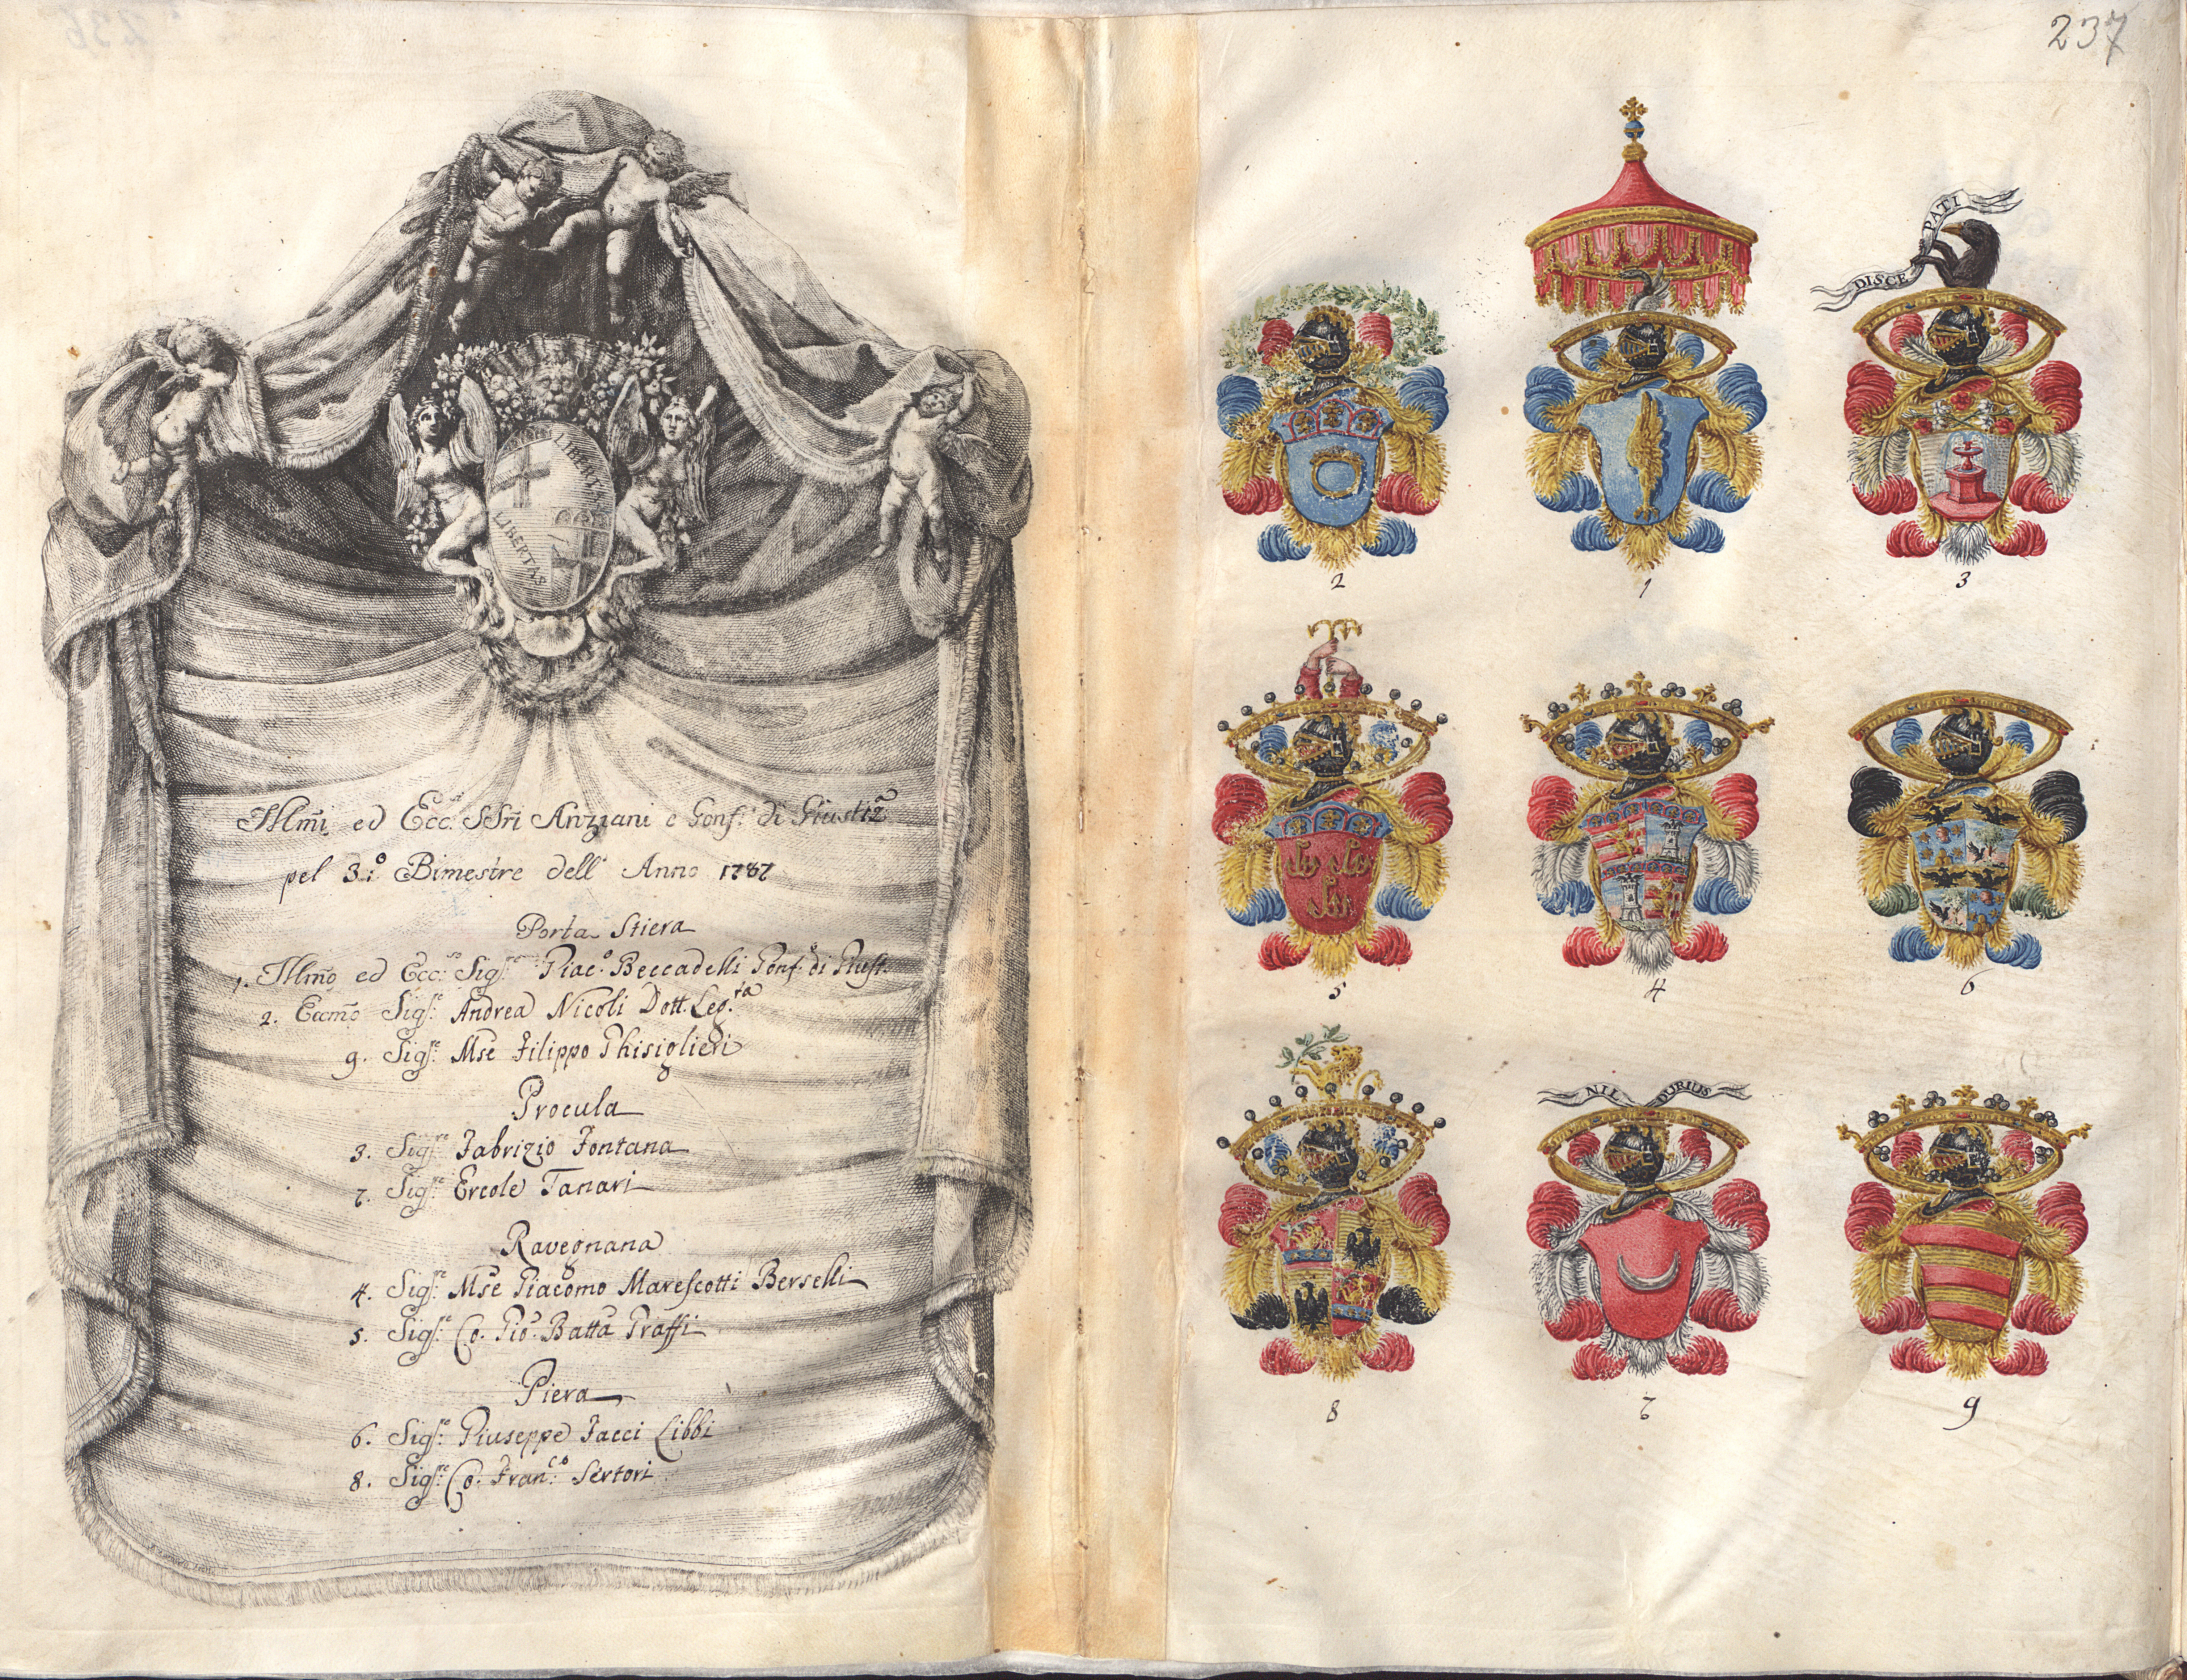 237
LIBERTAS
LIBERTAS
Illmi ed Ecc.si SSri Anziani e Gonf.i di Giustiz.a
pel 3.o Bimestre dell' Anno 1787
Porta Stiera
1. Illmo ed Ecc.so Sig.re Giac.o Beccadelli Gonf.e di Giust.
2. Eccmo Sig.re Andrea Nicoli Dott. Leg.ta
9. Sig.re Mse Filippo Ghisiglieri
Procula
3. Sig.re Fabrizio Fontana
7. Sig.re Ercole Tanari
Ravegnana
4. Sig.re Mse Giacomo Marescotti Berselli
5. Sig.re Co. Gio. Batta Graffi
Piera
6. Sig.re Giuseppe Jacci Libbi
8. Sig.re Co. Fran.co Sertori
DISCE PATI
2
1
3
5
4
6
NIL DURIUS
8
7
9